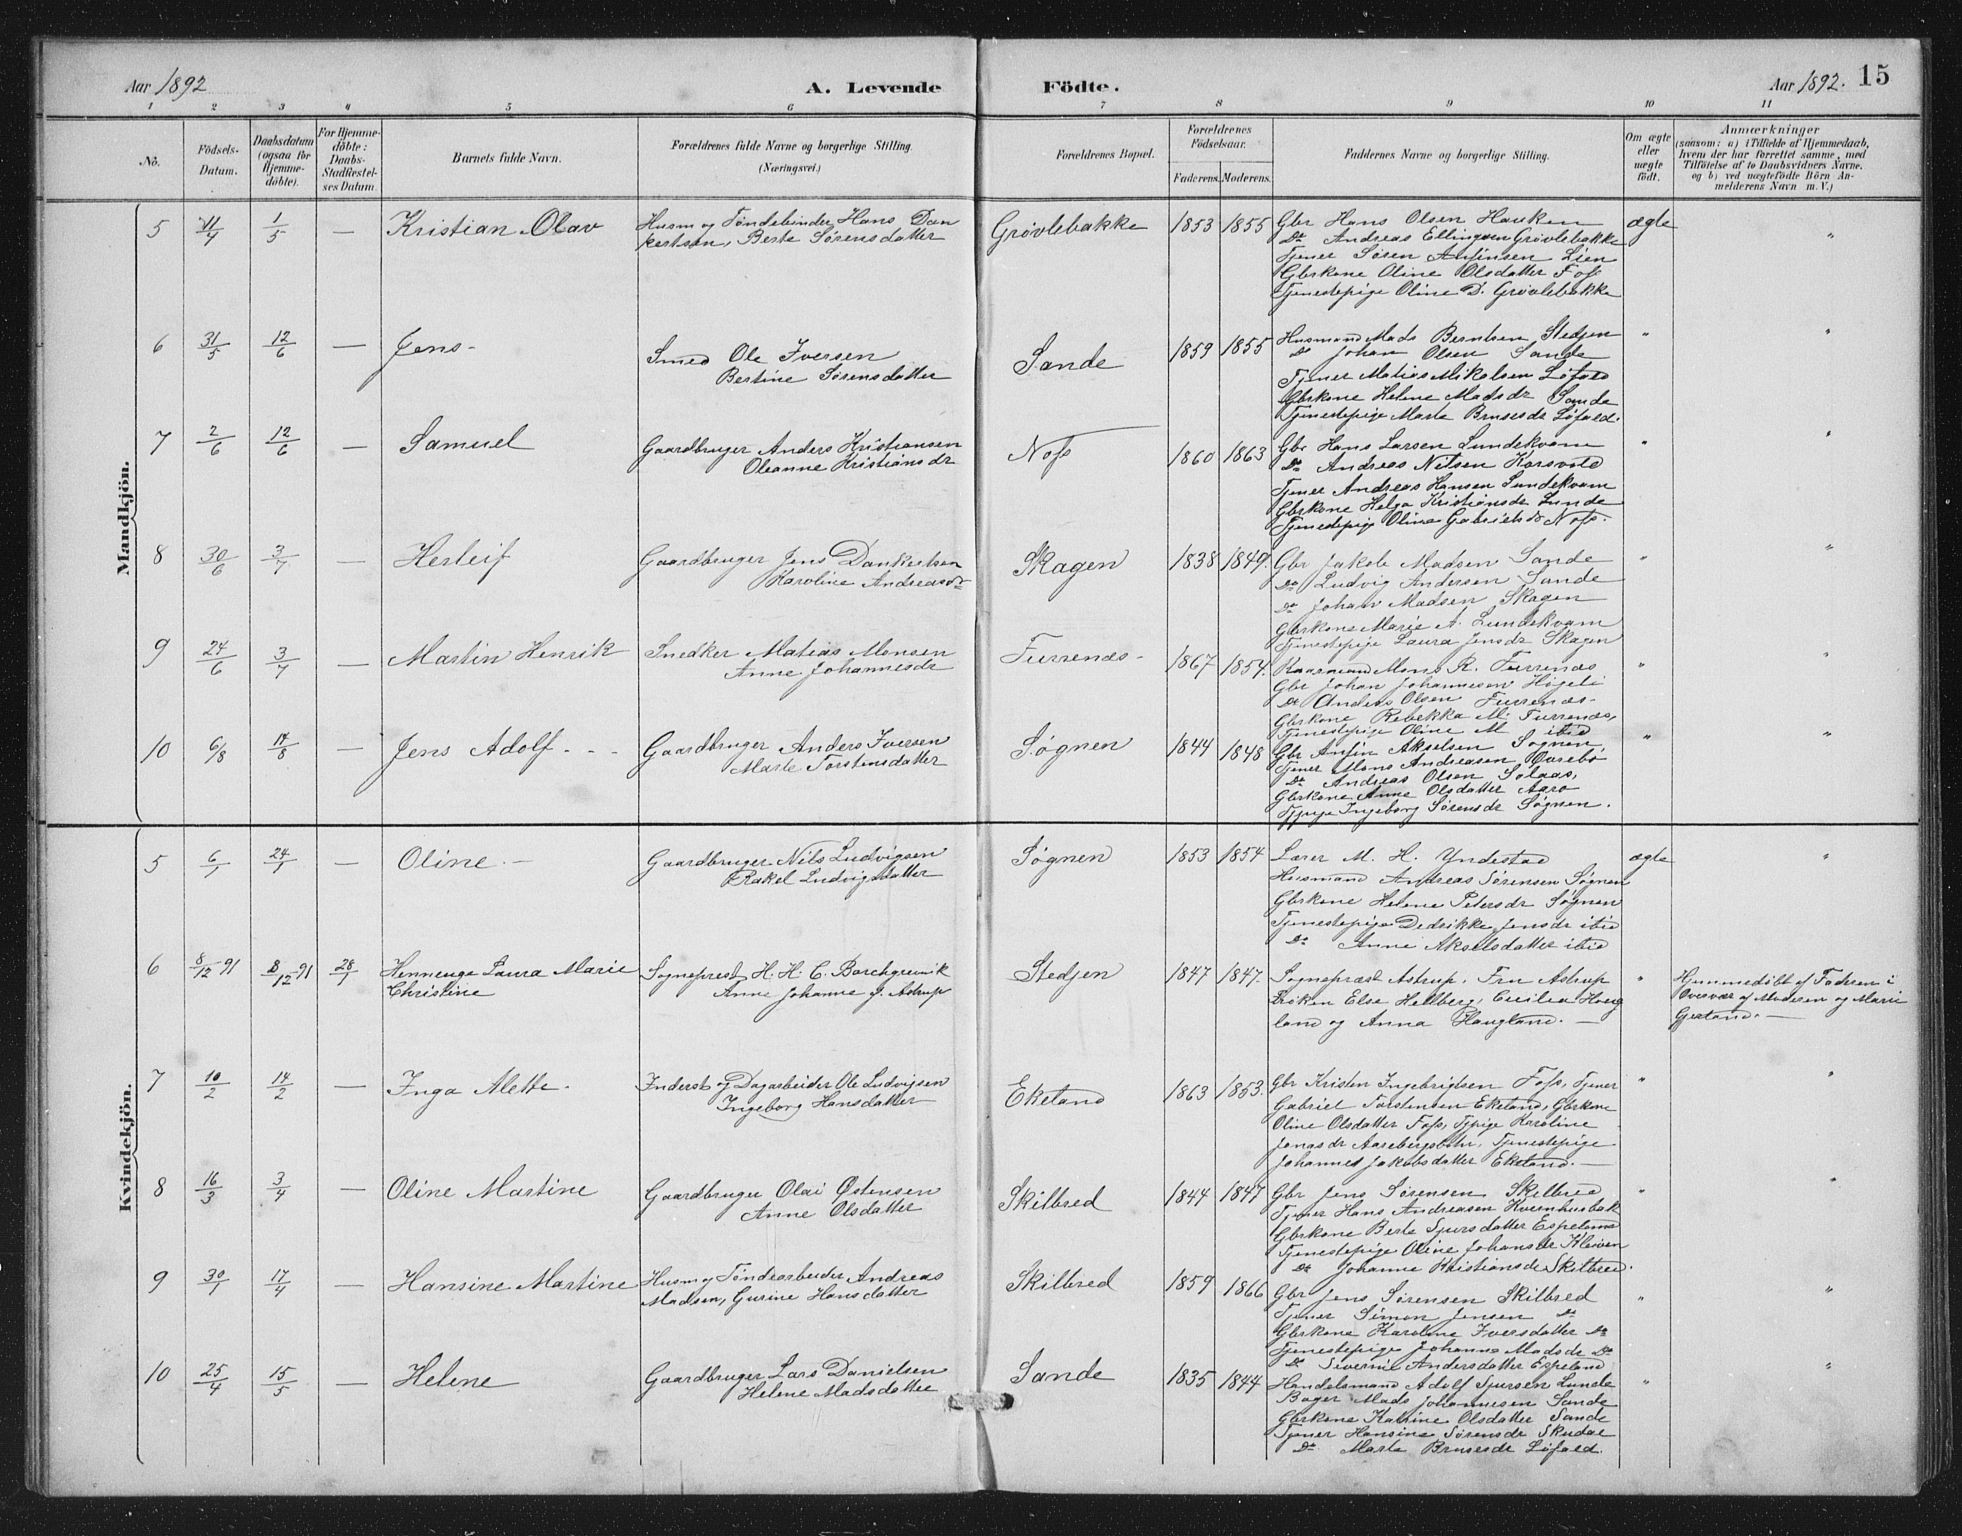 Aar 1892
A. Levende
Födte.
Aar 1892. 15
1 2 3 4 5 6 7 8 9 10 11
No.
Födsels-
Datum.
Daabsdatum
(ogsaa for
Hjemme-
döbte).
For Hjemme-
döbte:
Daabs-
Stadfestel-
ses Datum.
Barnets fulde Navn.
Forældrenes fulde Navne og borgerlige Stilling.
(Næringsvei.)
Forældrenes Bopæl.
Forældrenes
Födselsaar.
Faderens. Moderens.
Faddernes Navne og borgerlige Stilling.
Om ægte
eller
uægte
født.
Anmærkninger
(saasom: a) i Tilfælde af Hjemmedaab,
hvem der har forrettet samme, med
Tilföielse af to Daabsvidners Navne,
og b) ved uægtefödte Börn An-
melderens Navn m. V.)
Mandkjön.
5 11/4 1/5 — Kristian Olav
Husm og Tøndebinder Hans Dan
kertsen, Berte Sørensdatter
Grøvlebakke 1853 1855
Gbr Hans Olsen Hauken
Do Andreas Ellingsen Grøvlebakke
Tjener Søren Anfinsen Lien
Gbrkone Oline Olsdatter Fos
Tjenestepige Oline D. Grøvlebakke
ægte "
6 31/5 12/6 — Jens
Smed Ole Iversen
Bertine Sørensdatter
Sande 1859 1855
Husmand Mads Berntsen Stedjen
Do Johan Olsen Sande
Tjener Matias Mikalsen Løfald
Gbrkone Helene Madsdr Sande
Tjenestepige Marte Brusesdr Løfald.
" "
7 2/6 12/6 — Samuel
Gaardbruger Anders Kristiansen
Oleanne Kristiansdr
Nos 1860 1863
Gbr Hans Larsen Sundekvam
Do Andreas Nilsen Karsvold
Tjener Andreas Hansen Sundekvam
Gbrkone Helga Kristiansdr Lunde
Tjenestepige Oline Gabrielsdr Nos.
" "
8 30/6 3/7 — Herleif
Gaardbruger Jens Dankertsen
Karoline Andreasdr
Skagen 1838 1849
Gbr Jakob Madsen Sande
Do Ludvig Andersen Sande
Do Johan Madsen Skagen
Gbrkone Marie A. Lundekvam
Tjenestepige Laura Jensdr Skagen
" "
9 24/6 3/7 — Martin Henrik
Snedker Matias Monsen
Anne Johannesdr
Furrenæs 1867 1854
Kaarmand Mons R. Furrenæs
Gbr Johan Johannesen Høgeli
Do Anders Olsen Furrenæs
Gbrkone Rebekka M. Furrenæs,
Tjenestepige Oline M ibid
" "
10 6/8 14/8 — Jens Adolf
Gaardbruger Anders Iversen
Marte Torstensdatter
Søgnen 1844 1848
Gbr Anfin Akselsen Sognen,
Tjener Mons Andreasen Øvrebø
Do Andreas Olsen Solaas,
Gbrkone Anne Olsdatter Aarø
Tjpige Ingeborg Sørensdr Søgnen.
" "
Kvindekjön.
5 6/1 24/1 — Oline
Gaardbruger Nils Ludvigsen
Rakel Ludvigsdatter
Søgnen 1853 1854
Lærer M. H. Yndestad
Husmand Andreas Sørensen Søgnen
Gbrkone Helene Petersdr Søgnen
Tjenestepige Dedrikke Jensdr ibid
Do Anne Akselsdatter ibid
ægte "
6 8/12 91 8/12 91 28/1
Laura Marie
Christine
Sogneprest H. H. C. Borchgrevink
Anne Johanne g. Astrup
Stedjen 1847 1847
Sogneprest Astrup. Fru Astrup
Frøken Else Hellberg, Cecilia Houg
land og Anna Haugland. —
"
Hjemmedøbt af Faderen i
Overvær af Moderen og Marie
Gjetland. —
7 10/2 14/2 — Inga Alette
Inderst og Dagarbeider Ole Ludvigsen
Ingeborg Hansdatter
Ekeland 1863 1853
Gbr Kristen Ingebrigtsen Fos, Tjener
Gabriel Torstensen Ekeland, Gbrkone
Oline Olsdatter Fos, Tjpige Karoline
Jonasdr Aarebergsbotn, Tjenestepige
Johanne Jakobsdatter Ekeland. —
" "
8 16/3 3/4 — Oline Martine
Gaardbruger Olai Østensen
Anne Olsdatter
Skilbred 1844 1847
Gbr Jens Sørensen Skilbred
Tjener Hans Andreasen Kvernhusbak
Gbrkone Berte Sjursdatter Espeland
Tjenestepige Oline Johansdr Kleiven
Do Johanne Kristiansdr Skilbred.
" "
9 30/1 17/4 — Hansine Martine
Husm og Tøndearbeider Andreas
Madsen, Gurine Hansdatter
Skilbred 1859 1866
Gbr Jens Sørensen Skilbred
Tjener Simon Jensen Do
Gbrkone Karoline Iversdatter Do
Tjenestepige Johanne Madsdr Do
Do Severine Andersdatter Espeland
" "
10 25/4 15/5 — Helene
Gaardbruger Lars Danielsen
Helene Madsdatter
Sande 1835 1844
Handelsmand Adolf Sjursen Lunde
Bager Mads Johannesen Sande
Gbrkone Katrine Olsdatter Sande
Tjener Hansine Sørensdr Skudal
Do Marte Brusesdr Løfald.
" "